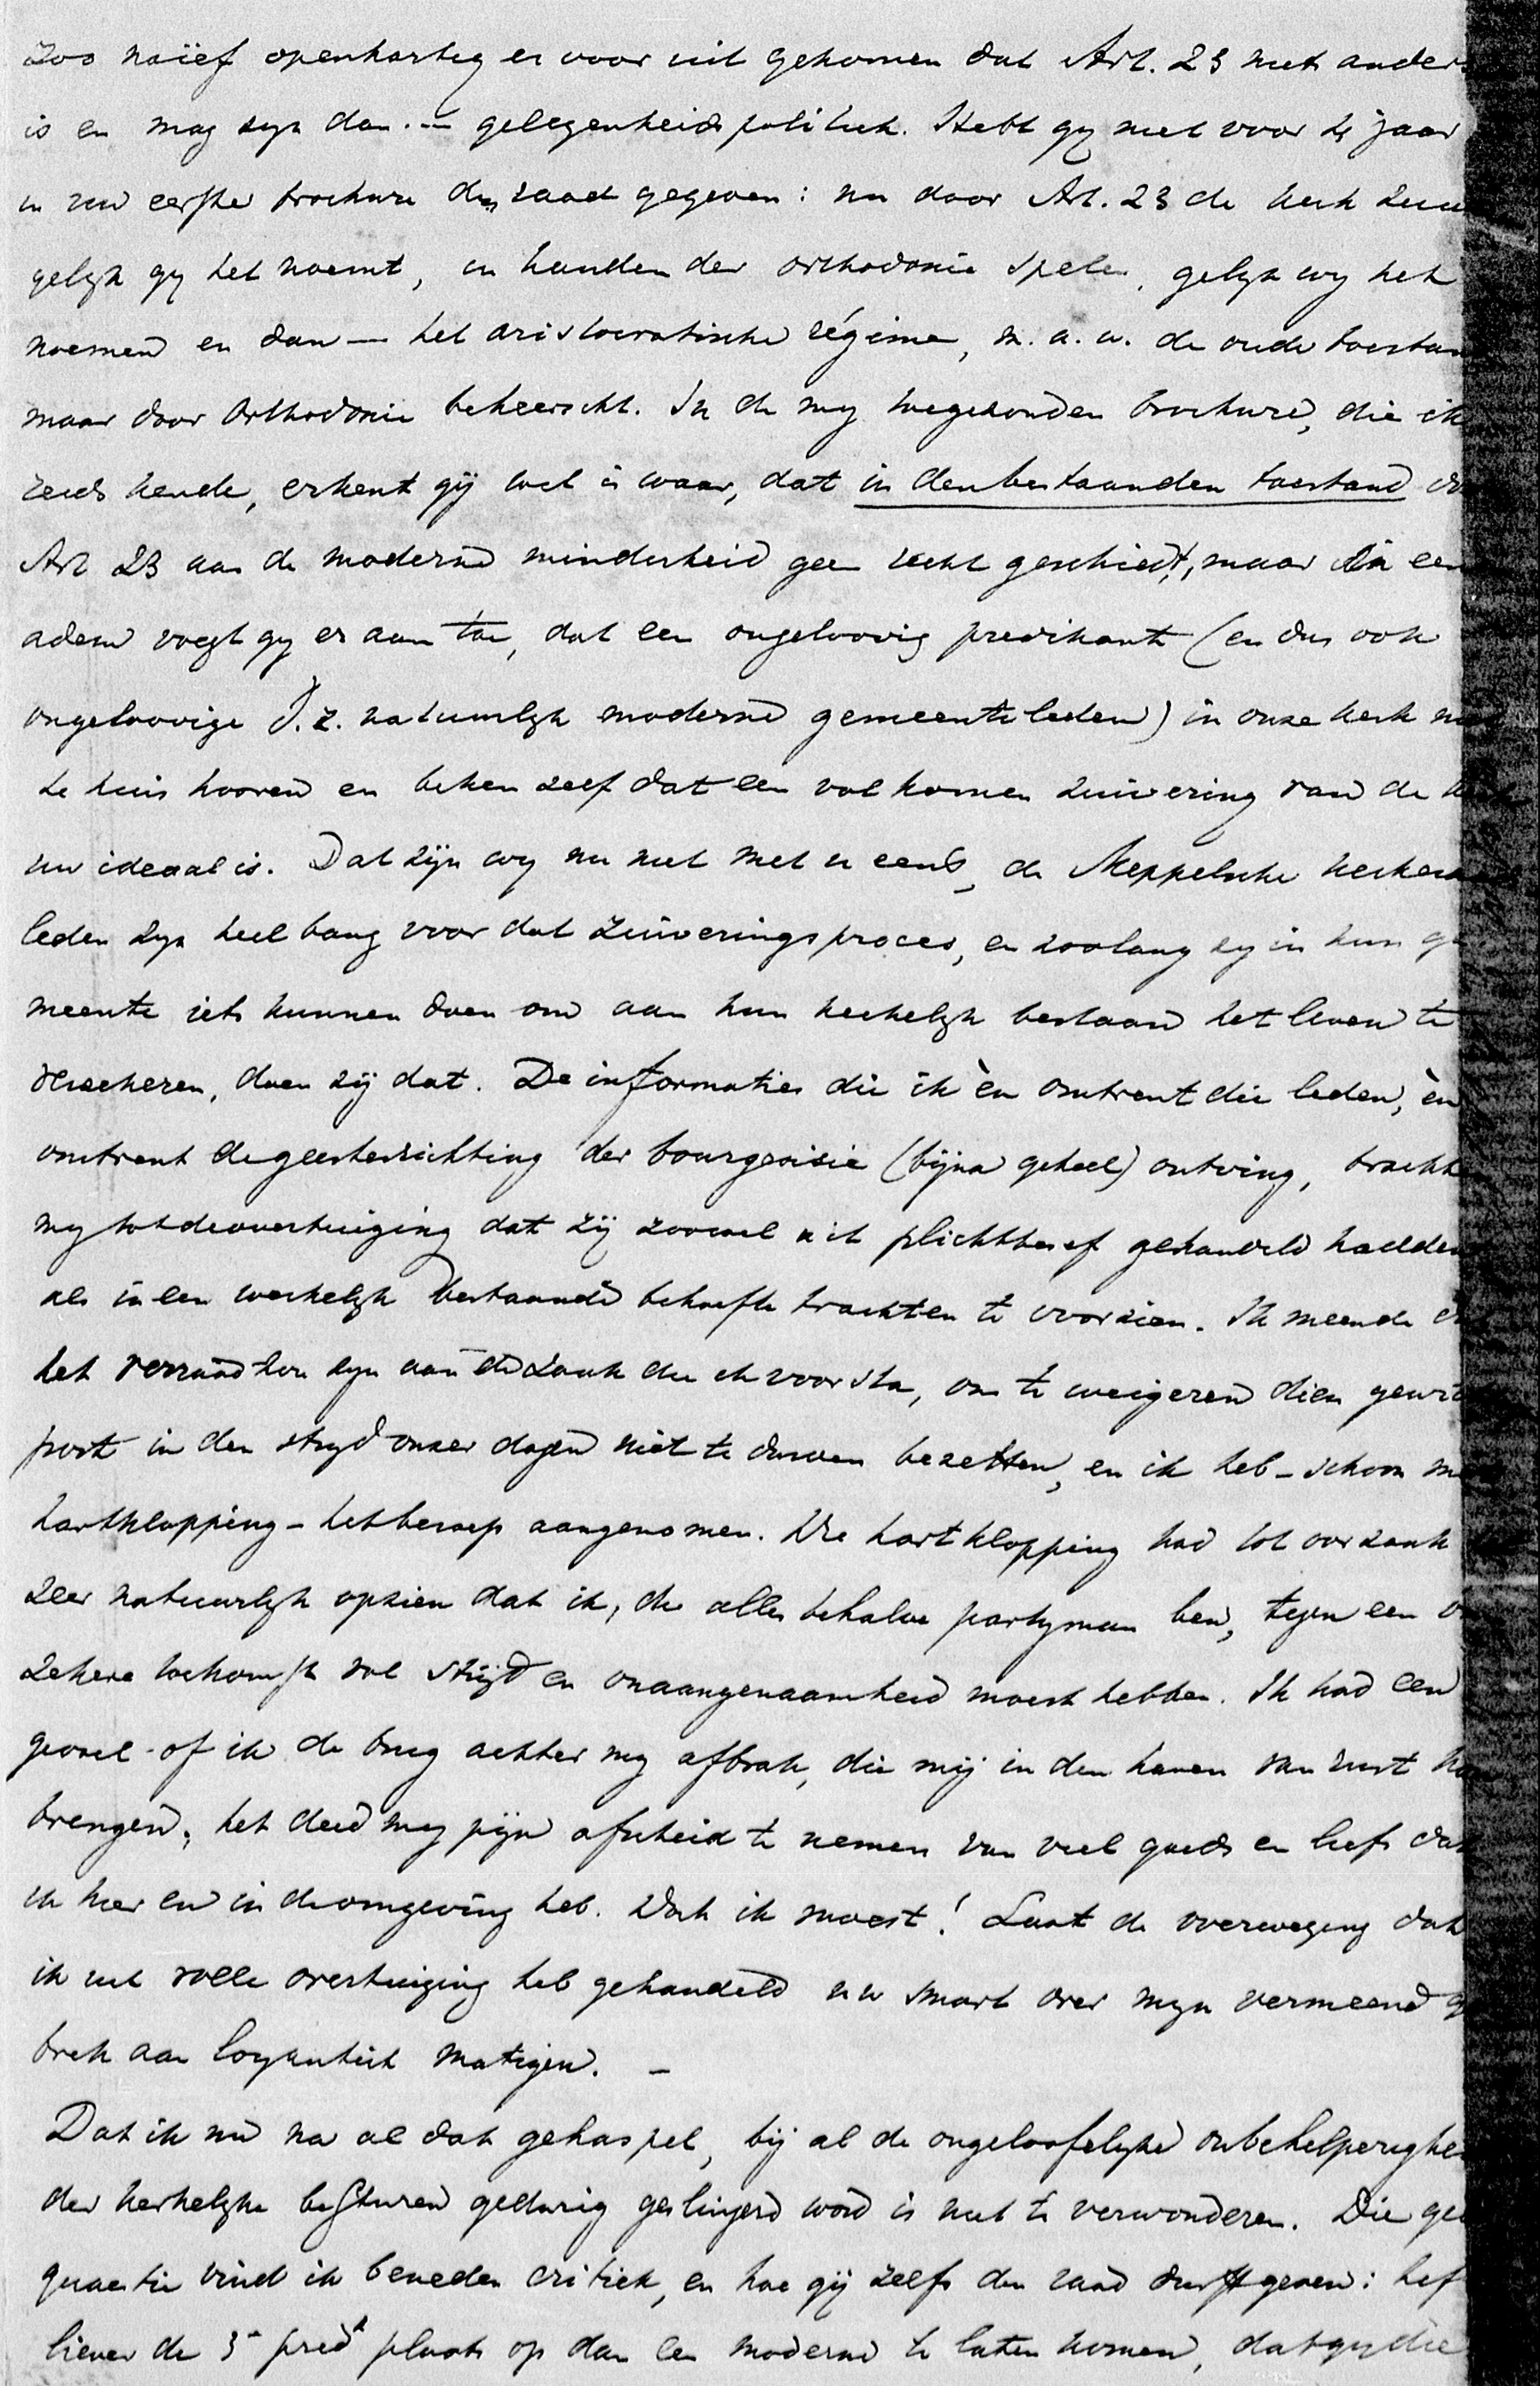 zoo naïef openhartig er voor uit gekomen dat Art. 23 niets anders
is en mag zyn dan .— gelegenheidspolitiek. Hebt gy niet voor 4 jaar
in uw eerste brochure den raad gegeven: nu door Art. 23 de kerk
gelyk gy het noemt, in handen der orthodoxie spelen, gelyk wy het
noemen en dan — het aristocratische régime, m. a. w. de oude toestan
maar door Orthodoxie beheerscht. In de my toegezonden brochure, die ik
reeds kende, erkent gij wel is waar, dat in den bestaanden toestand
Art 23 aan de moderne minderheid geen recht geschiedt, maar in een
adem voegt gy er aan toe, dat een ongeloovig predikant (en dus ook
ongeloovige d. z. natuurlyk moderne gemeenteleden) in onze kerk
te huis hooren en beken zelf dat een volkomen zuivering van de
uw ideaal is. Dat zijn wy nu niet met u eens, de Meppelsche
leden zyn heel bang voor dat zuiveringsproces, en zoolang zy in hun ge
meente iets kunnen doen om aan hun kerkelyk bestaan het leven te
verzekeren, doen zij dat. De informaties die ik èn omtrent die leden, èn
omtrent de geestesrichting der bourgeoisie (bijna geheel) ontving, bracht
my tot de overtuiging dat zij zoowel uit plichtbesef gehandeld hadden
als in een werkelyk bestaande behoefte trachten te voorzien. Ik meende
het verraad zou zyn aan de zaak die ik voorsta, om te weigeren dien
post in den stryd onzer dagen niet te durven bezetten, en ik heb – schoon
hartklopping – het beroep aangenomen. Die hartklopping had tot oorzaak
zeer natuurlyk opzien dat ik, die alles behalve partyman ben, tegen een
zekere toekomst vol strijd en onaangenaamheid moest hebben. Ik had een
gevoel of ik de brug achter my afbrak, die mij in den haven van rust
brengen; het deed my pijn afscheid te nemen van veel goeds en liefs dat
ik hier en in de omgeving heb. Doch ik moest! Laat de overweging dat
ik uit volle overtuiging heb gehandeld uw smart over myn vermeend ge
brek aan loyauteit matigen. —
Dat ik nu na al dat gehaspel, bij al de ongelooflyke onbeholperighe
der kerkelyke besturen gedurig geslingerd word is niet te verwonderen. Die
quaestie vind ik beneden critiek, en hoe gij zelfs den raad durft geven: hef
liever de 3e predt plaats op dan een moderne te laten komen, dat gy die